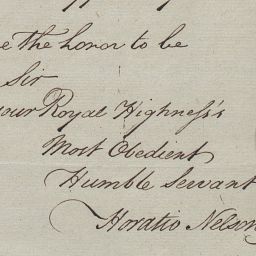 the honor to be
Sir
your Royal Highness's
Most Obedient
Humble Servant
Horatio Nelson